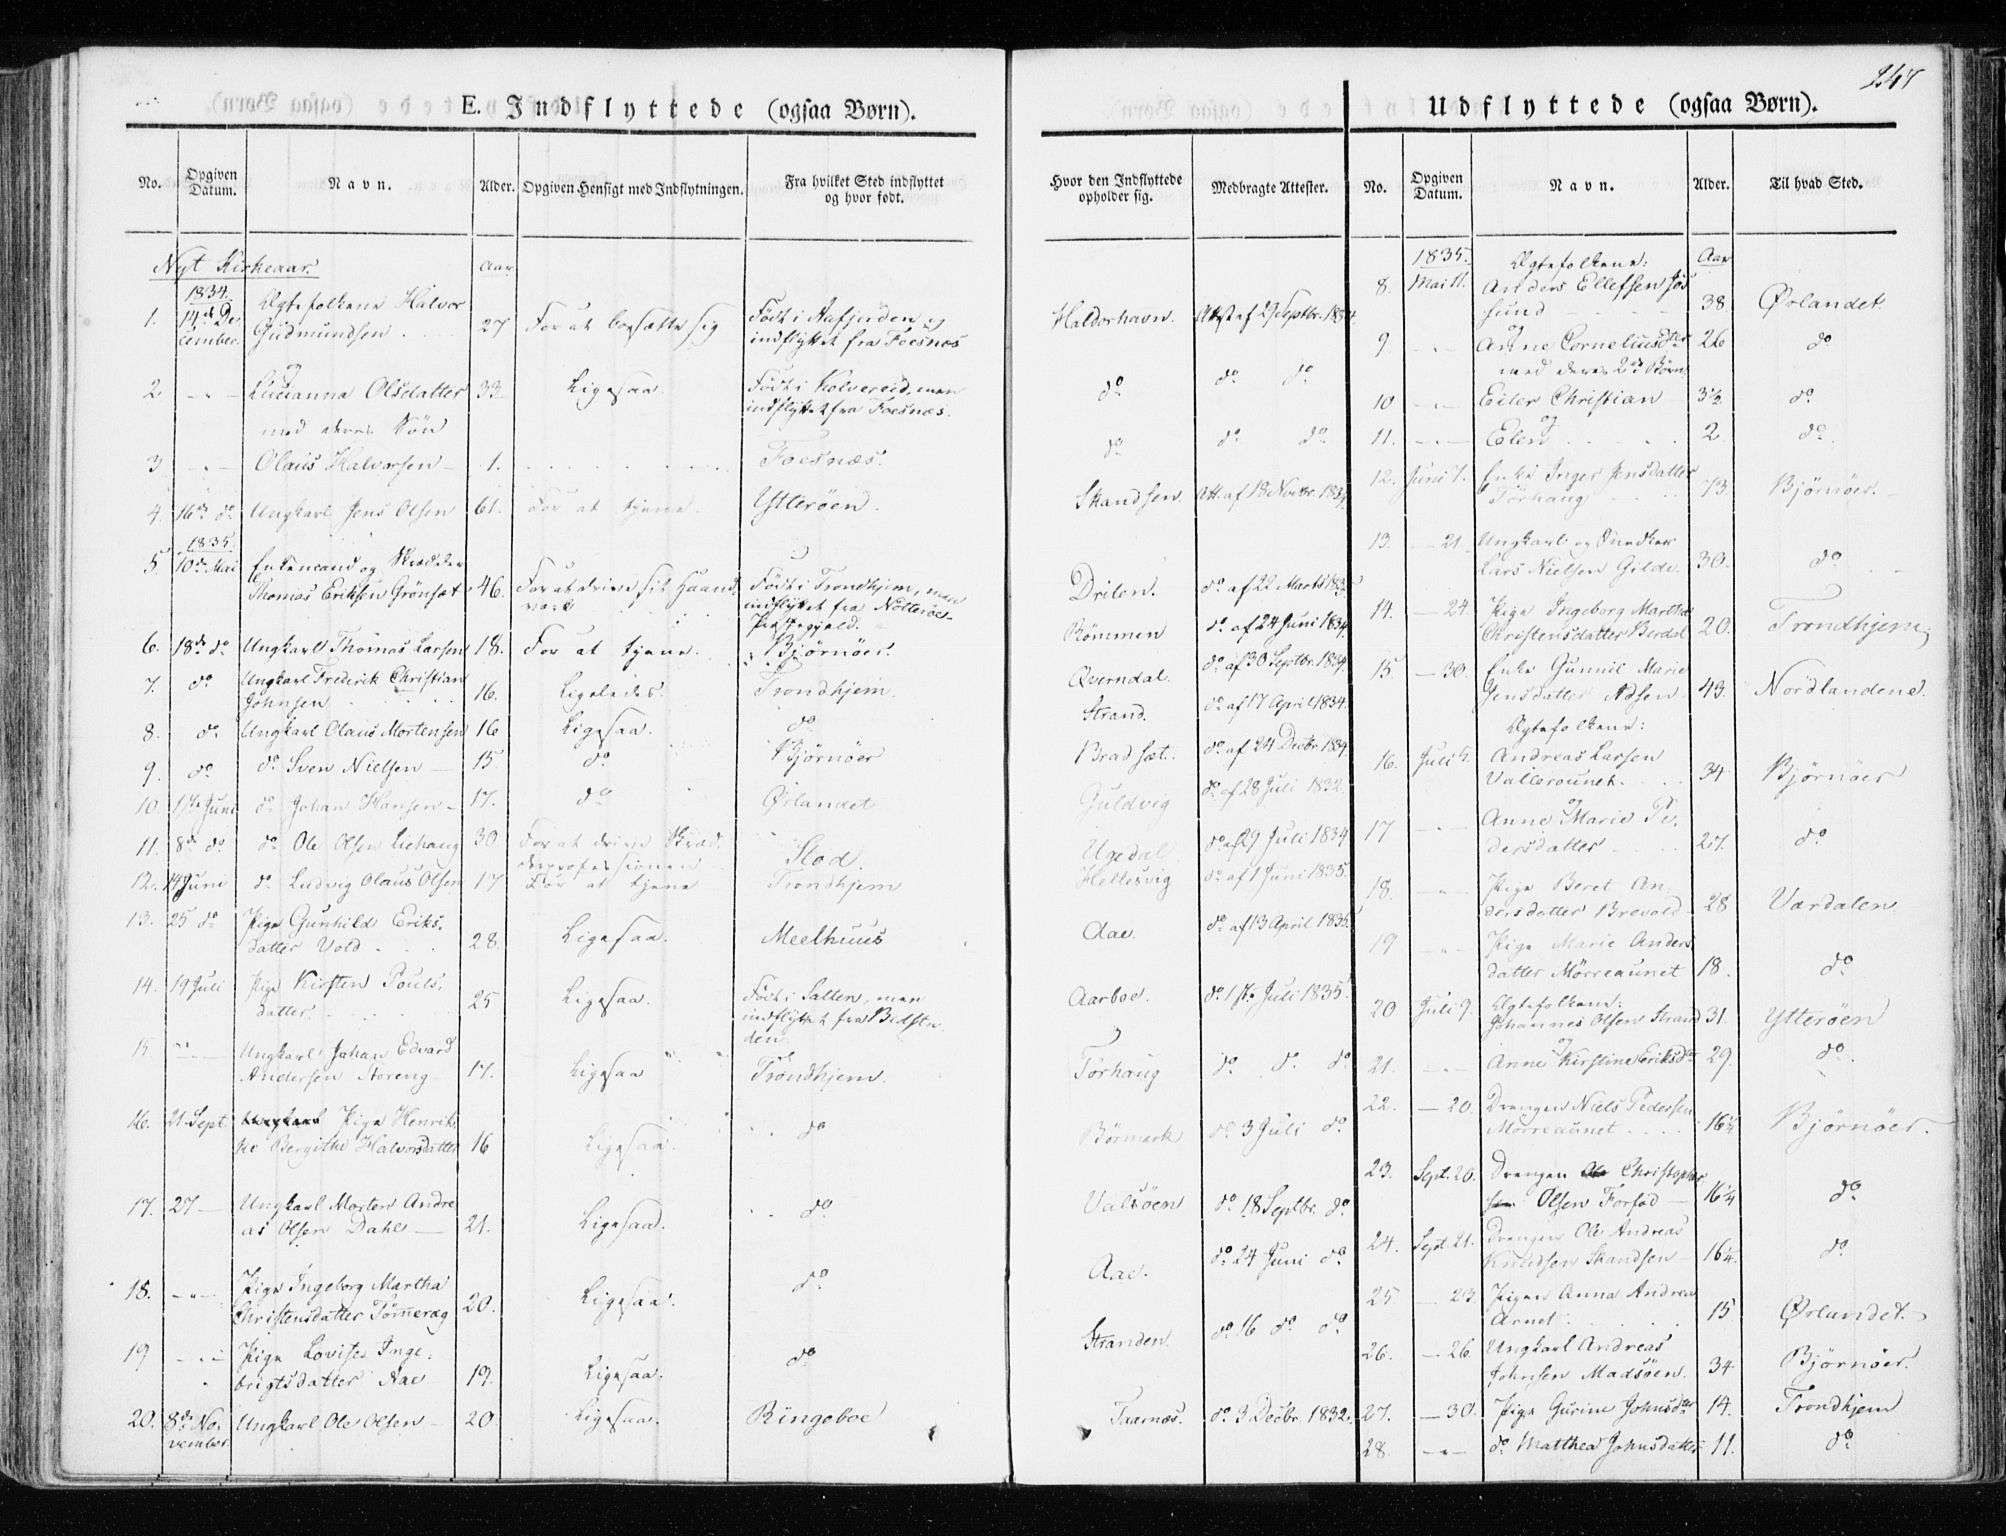 247
E. Indflyttede (ogsaa Børn).
No. Opgiven Datum. Navn. Alder. Opgiven Hensigt med Indflytningen. Fra hvilket Sted indflyttet og hvor født.
Nyt Kirkeaar. Aar
1834.
1. 14de De Ægtefolkene Halvor Født i Aafjorden og
cember. Gudmundsen 27 For at bosætte sig indflyttet fra Foesnæs
og
2 - " - Lucianna Olsdatter 33 Ligesaa. Født i Kolvereid, men
med deres Søn indflyttet fra Foesnæs.
3 - " - Olaus Halvorsen - 1. Foesnæs.
4. 16de do Ungkarl Jens Olsen 61. For at tjene. Ytterøen.
1835.
5. 10de Mai Enkemand og Skrædder Født i Trondhjem, men
Thomas Eriksen Grønsæt 46. For at drive sit Haand indflyttet fra
værk Præstegjæld.
6. 18de do Ungkarl Thomas Larsen 18. For at tjene. Bjørnøer.
7. do Ungkarl Frederik Christian
Johnsen 16. Ligeledes. Trondhjem.
8. do Ungkarl Olaus Mortensen 16 Ligesaa. do
9. do do Sven Nielsen - 15. do Bjørnøer
10. 1ste Juni do Johan Hansen - 17. do Ørlandet
11. 8de do do Ole Olsen Liehaug 30 For at drive Skræd-
derprofessionen Stod.
12. 14 Juni do Ludvig Olaus Olsen 17 For at tjene - Trondhjem
13. 25 do Pige Gunhild Eriks-
datter Vold 28. Ligesaa. Meelhuus
14. 19 Juli Pige Kirsten Pouls- Født i Salten, men
datter. 25 Ligesaa. indflyttet fra Bedstа-
den.
15. - " - Ungkarl Johan Edvard
Andersen Aoreng 17. Ligesaa Trondhjem.
16. 21 Sept. Ungkarl Pige Henrik-
ke Bergithe Halvorsdatter 16 Ligesaa. do
17. 27 - Ungkarl Morten Andre
as Olsen Dahl - 21. Ligesaa. do
18. - " - Pige Ingeborg Martha
Christensdatter Tømerag 20. Ligesaa. do
19 - " - Pige Lovise Inge-
brigtsdatter Aae 19. Ligesaa. do
20. 8de No- Ungkarl Ole Olsen - 20 Ligesaa. Ringeboe
vember.
Hvor den Indflyttede opholder sig. Medbragte Attester.
Haldorhavn. Attest af 29 Septbr. 1834.
do do do
do do do
Skandsen. Att. af 18 Novbr. 1834.
Drilen. do af 22 Marts 1835
Rømmen do af 24 Juni 1834.
Qverndal. do af 30 Septbr. 1834.
Strand. do af 17 April 1834.
Bradsæt. do af 24 Decbr. 1834.
Guldvig do af 28 Juli 1832.
Ugedal. do af 29 Juli 1834
Hellesvig do af 1 Juni 1835.
Aae. do af 13 April 1835.
Aarboe. do 1ste Juli 1835.
Tørhaug do do do
Børmark do 3 Juli do
Valsøen do 18 Septbr. do
Aae. do 24 Juni do
Stranden. do 16 do do
Taarnæs. do 3 Decbr. 1832.
Udflyttede (ogsaa Børn).
No. Opgiven Datum. Navn. Alder. Til hvad Sted.
1835. Ægtefolkene: Aar
8. Mai 11. Anders Ellefsen Jøs
sund 38 Ørlandet.
og
9 - " - Anne Corneliusdter 26 do
med deres 2de Børn.
10 - " - Eiler Christian 3½ do
og
11. - " - Elen 2 do
12. Juni 7. Enke Inger Jensdatter
Tørhaug 73. Bjørnøer.
13. - 21. Ungkarl og Snedker
Lars Nielsen Gilde. 30. do
14. - 24. Pige Ingeborg Martha
Christensdatter Berdal 20. Trondhjem.
15. - 30. Enke Gunnil Marie
Jensdatter Adsen 43. Nordlandene.
Ægtefolkene:
16. Juli 4. Andreas Larsen
Valleraunet. 34 Bjørnøer
og
17 - " - Anne Marie Pe-
dersdatter 27. do
18. - " - Pige Beret An-
dersdatter Brevold 28 Værdalen.
19 - " - Pige Marie Anders
datter Mørreaunet 18. do
20 Juli 9. Ægtefolkene:
Johannes Olsen Strand 31. Ytterøen
og
21. - " - Anne Kirstine Eriksdr 29. do.
22. - 20. Drengen Niels Pedersen
Mørreaunet 16¼ Bjørnøer.
23. Sept. 20. Drengen Ole Christopher
Olsen Forfod - 16¼ do
24. Sept. 21. Drengen Ole Andreas
Knudsen Skandsen 16¼ do
25 - 23 Pigen Anna Andrea
Arnet 15 Ørlandet
26. - 26 Ungkarl Andreas
Johnsen Madsøen. 34 Bjørnøer.
27. - 30. Pige Gurine Johnsdr 14. Trondhjem
28. - " - do Matthea Johnsdatter 11. do